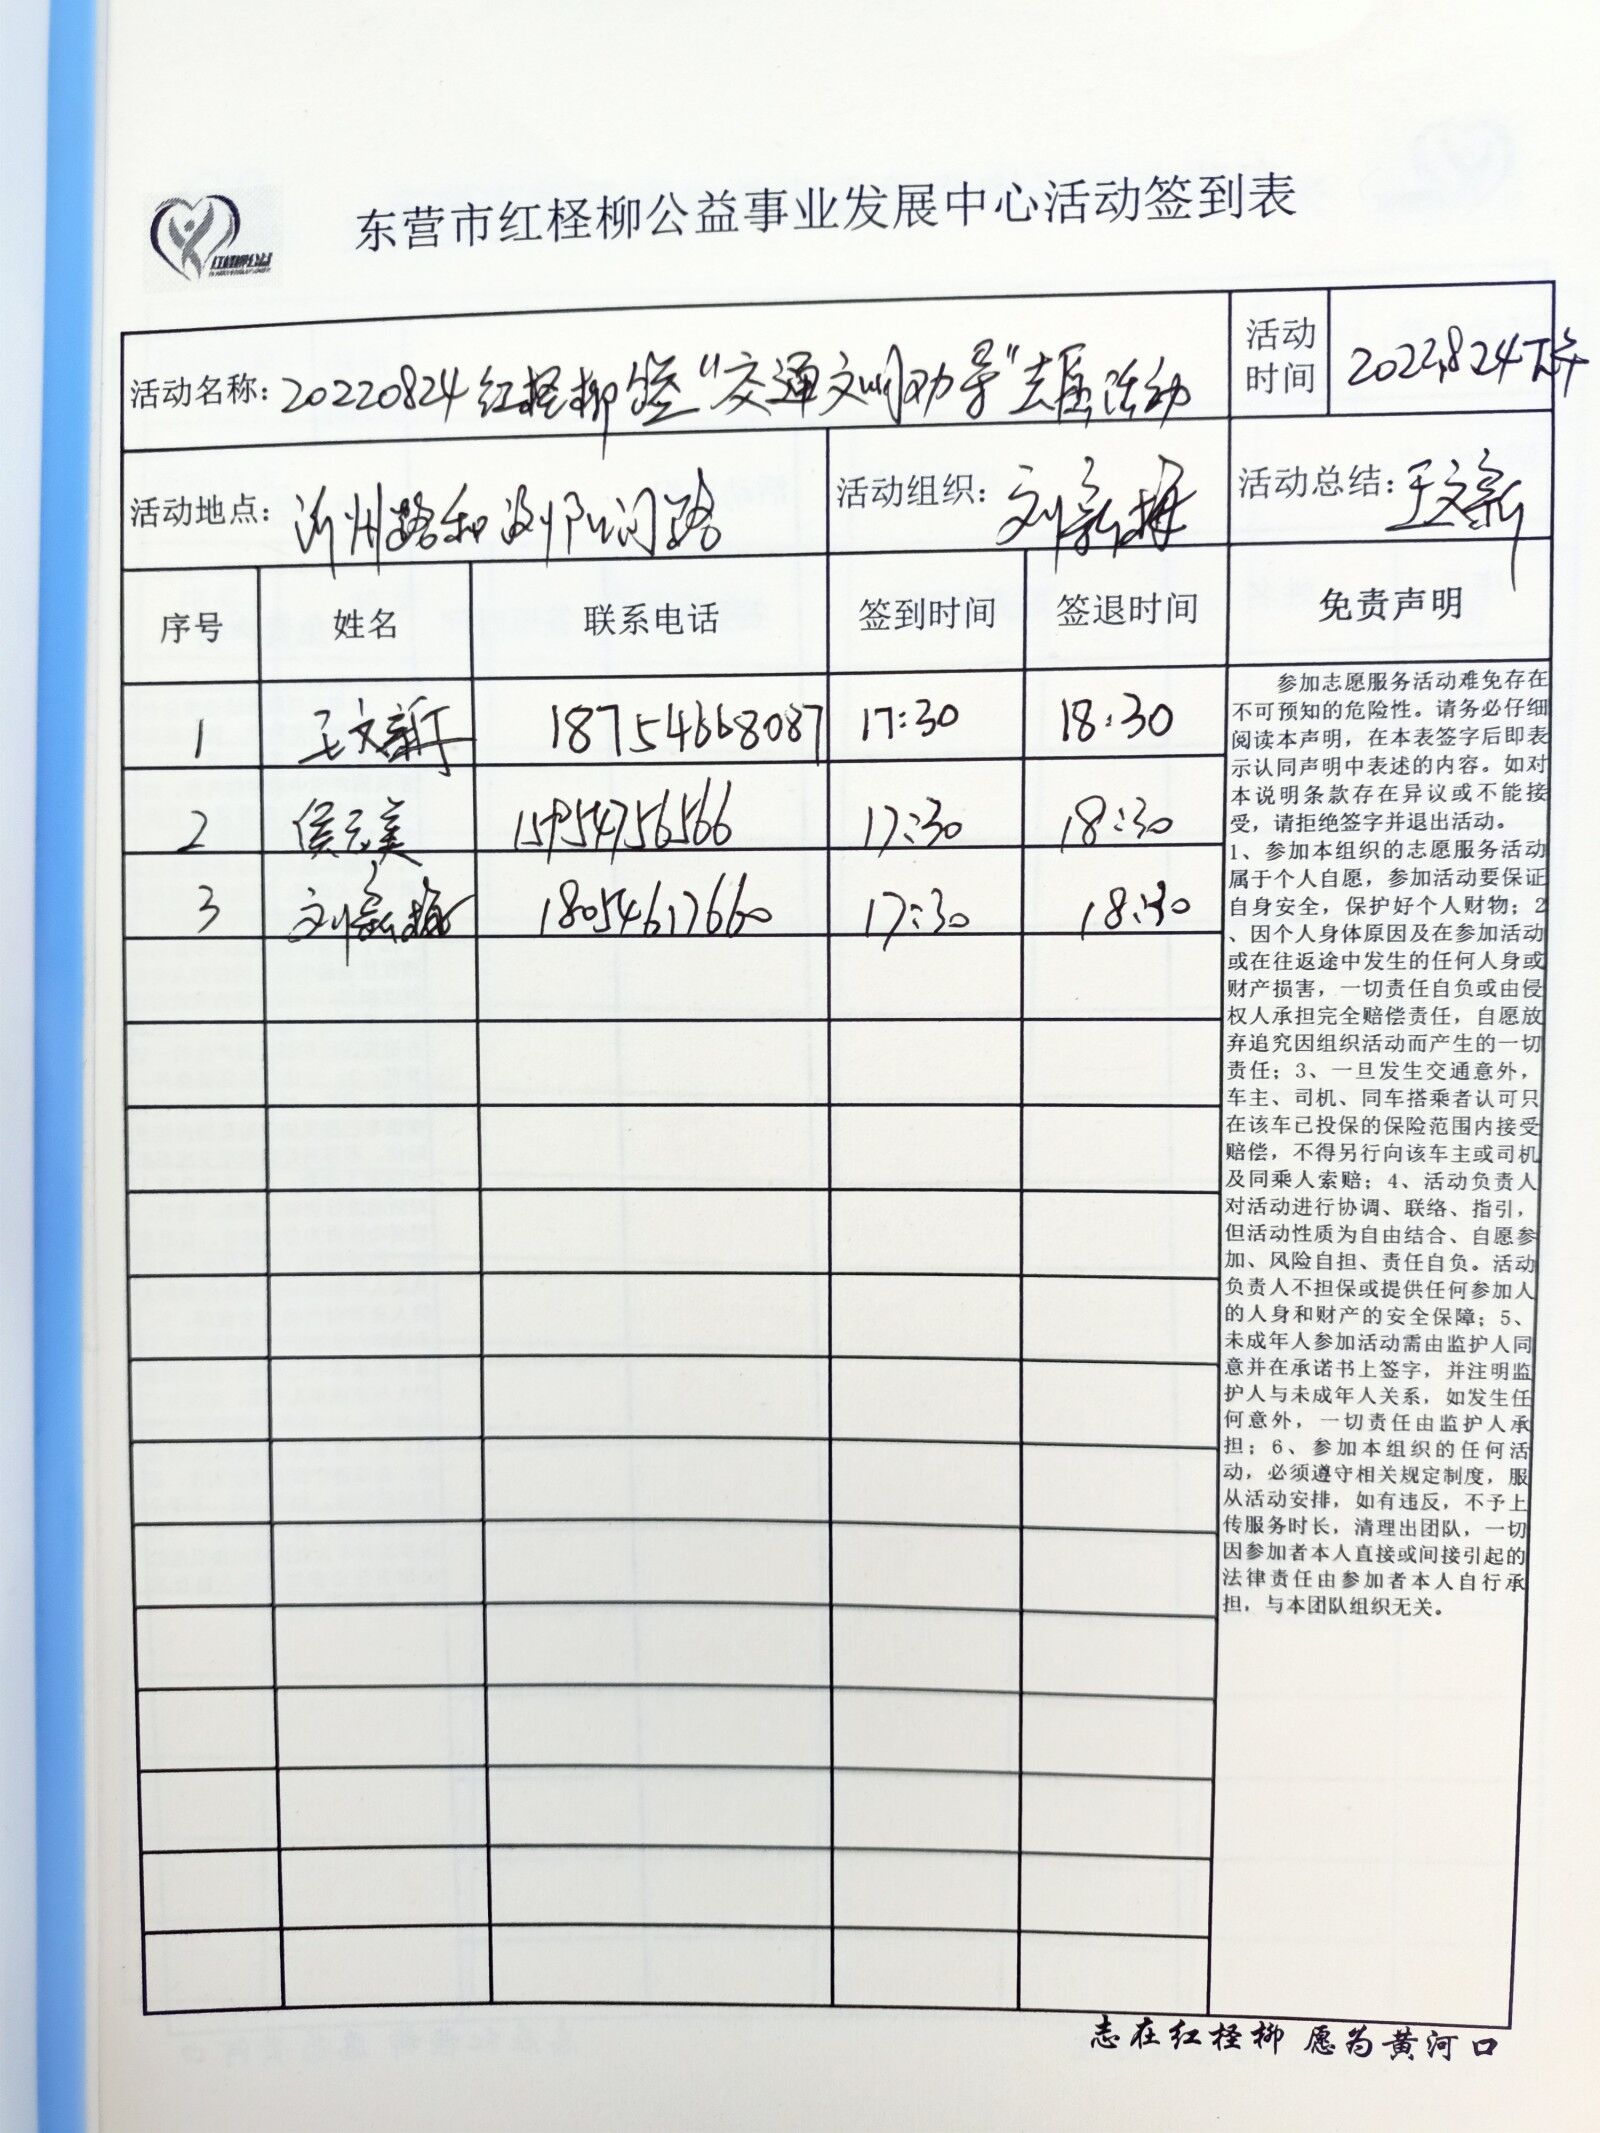 红柽柳公益
东营市红柽柳公益事业发展中心活动签到表
活动名称: 20220824红柽柳 "交通文明劝导"志愿活动
活动时间
2022.8.24下午
活动地点: 沂州路和 路
活动组织: 刘新梅
活动总结: 王文新
序号 姓名 联系电话 签到时间 签退时间 免责声明
1 王文新 18754668087 17:30 18:30
2 侯云美 15954756566 17:30 18:30
3 刘新梅 18054617660 17:30 18:30
参加志愿服务活动难免存在
不可预知的危险性。请务必仔细
阅读本声明，在本表签字后即表
示认同声明中表述的内容。如对
本说明条款存在异议或不能接
受，请拒绝签字并退出活动。
1、参加本组织的志愿服务活动
属于个人自愿，参加活动要保证
自身安全，保护好个人财物；2
、因个人身体原因及在参加活动
或在往返途中发生的任何人身或
财产损害，一切责任自负或由侵
权人承担完全赔偿责任，自愿放
弃追究因组织活动而产生的一切
责任；3、一旦发生交通意外，
车主、司机、同车搭乘者认可只
在该车已投保的保险范围内接受
赔偿，不得另行向该车主或司机
及同乘人索赔；4、活动负责人
对活动进行协调、联络、指引，
但活动性质为自由结合、自愿参
加、风险自担、责任自负。活动
负责人不担保或提供任何参加人
的人身和财产的安全保障；5、
未成年人参加活动需由监护人同
意并在承诺书上签字，并注明监
护人与未成年人关系，如发生任
何意外，一切责任由监护人承
担；6、参加本组织的任何活
动，必须遵守相关规定制度，服
从活动安排，如有违反，不予上
传服务时长，清理出团队，一切
因参加者本人直接或间接引起的
法律责任由参加者本人自行承
担，与本团队组织无关。
志在红柽柳 愿为黄河口